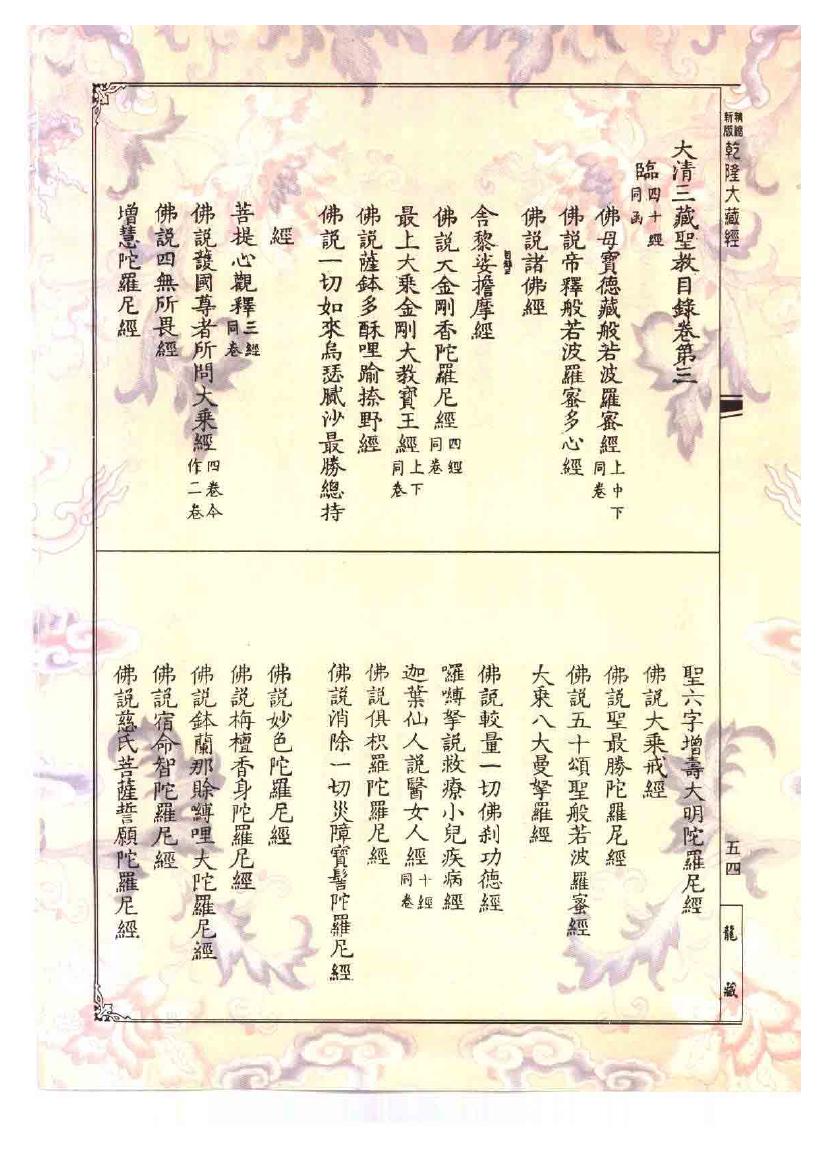 精縮
新版
乾隆大藏經
大清三藏聖教目錄卷第三
臨四十經同函
佛母寶德藏般若波羅蜜經上中下同卷
佛說帝釋般若波羅蜜多心經
佛說諸佛經
舍黎娑擔摩經
佛說大金剛香陀羅尼經四經同卷
最上大乘金剛大教寶王經上下同卷
佛說薩鉢多酥哩踰捺野經
佛說一切如來烏瑟膩沙最勝總持
經
菩提心觀釋三經同卷
佛說護國尊者所問大乘經四卷今作二卷
佛說四無所畏經
增慧陀羅尼經
聖六字增壽大明陀羅尼經
佛說大乘戒經
佛說聖最勝陀羅尼經
佛說五十頌聖般若波羅蜜經
大乘八大曼拏羅經
佛說較量一切佛刹功德經
囉嚩拏說救療小兒疾病經
迦葉仙人說醫女人經十經同卷
佛說俱枳羅陀羅尼經
佛說消除一切災障寶髻陀羅尼經
佛說妙色陀羅尼經
佛說栴檀香身陀羅尼經
佛說鉢蘭那賒嚩哩大陀羅尼經
佛說宿命智陀羅尼經
佛說慈氏菩薩誓願陀羅尼經
五四
龍藏